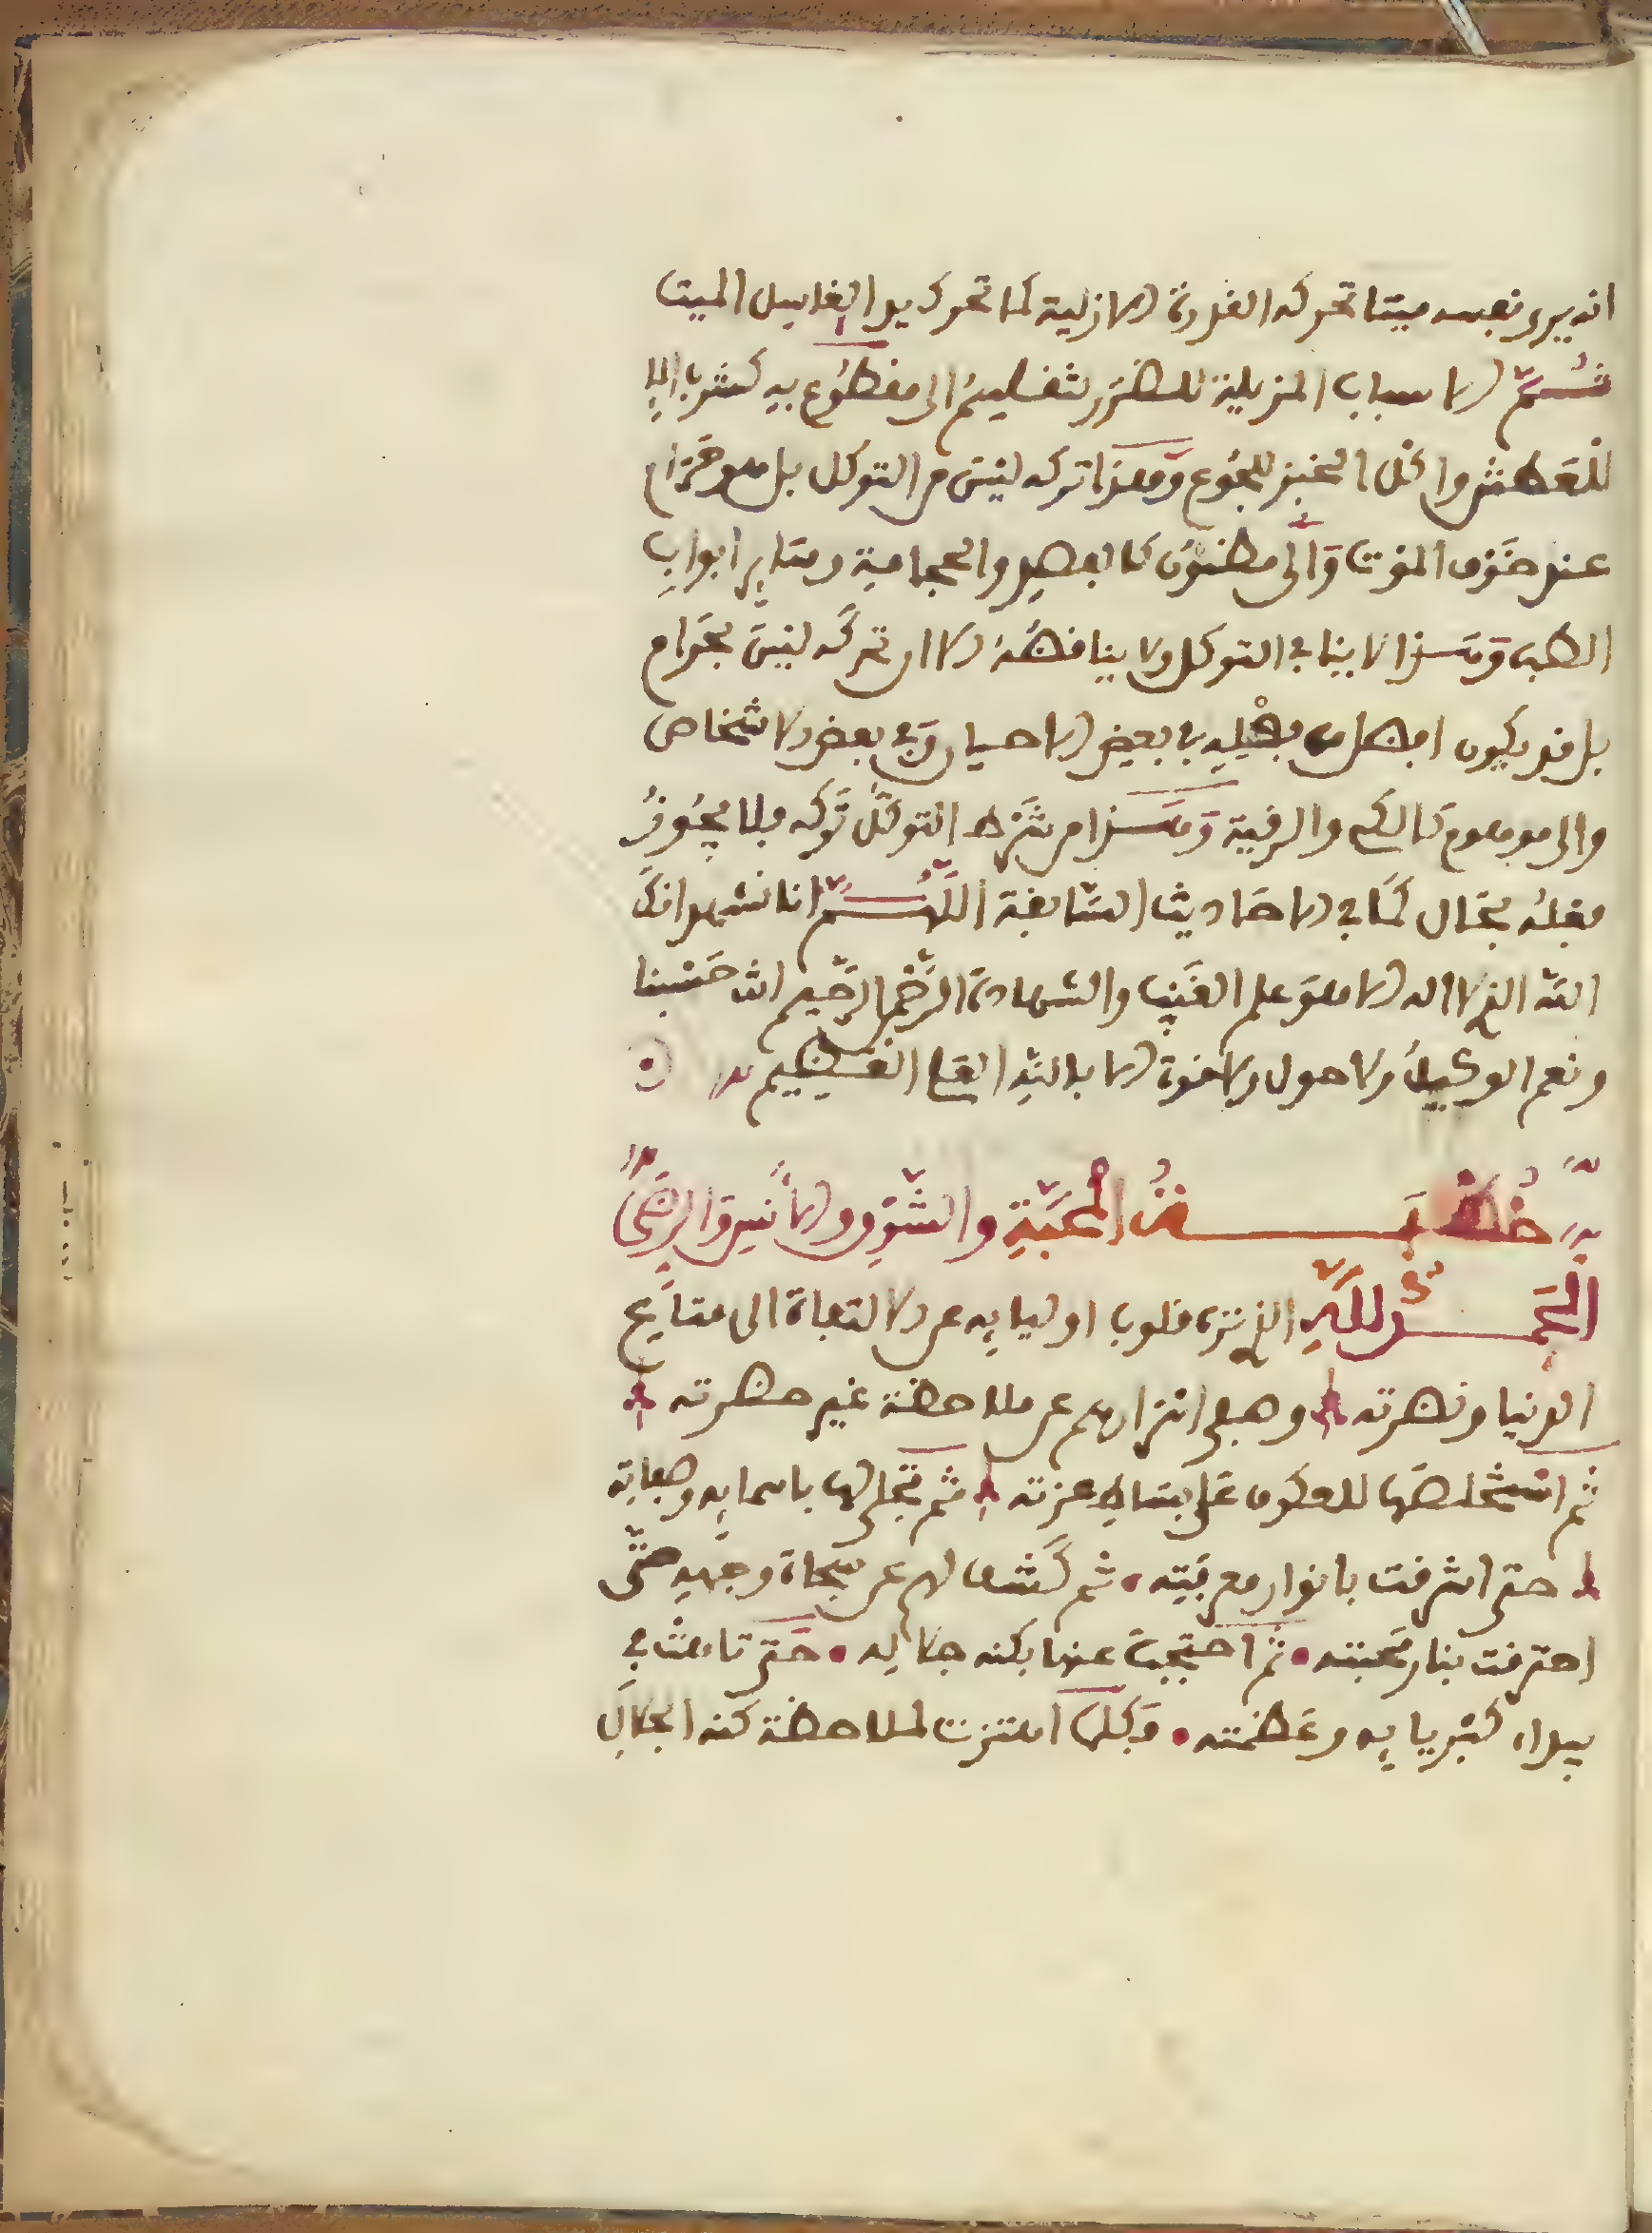 انه يرى نفسه ميتا تحركه القدرة الازلية كما تحرك يد الغاسل الميت
ثُمَّ الاسباب المزيلة للضرر تنقسم الى مقطوع به كشرب الما
للعطش واكل الخبز للجوع وهذا تركه ليس من التوكل بل هو حرام
عند خوف الموت وَالى مظنون كالفصد والحجامة وسائر ابواب
الطب وهذا لا ينافي التوكل ولا يناقضه الا ان تركه ليس بحرام
بل قد يكون افضل من فعله في بعض الاحيان وفي بعض الاشخاص
والى موهوم كالكي والرقية وهذا من شرط التوكل تركه فلا يجوز
فعله بحال كما في الاحاديث السابقة اللَّهُمَّ انا نشهد انك
الله الذي لا اله الا هو علم الغيب والشهادة الرحمن الرحيم انت حسبنا
ونعم الوكيل ولا حول ولا قوة الا بالله العلي العظيم
خُطْبَة فِي المحَبَّةِ والشَّوْقِ والأنسِ وَالرِّضَى
الحَمْدُ لِلَّهِ الذي نزه قلوب اوليايه عن الالتفاة الى متاع
الدنيا ونضرته وصفى اسرارهم عن ملاحظة غير حضرته
ثم استخلصها للعكوف على بساط عزته ثم تجلى لها باسمايه وصفاته
حتى اشرقت بانوار معرفته ثم كشف لهم عن سبحاة وجهه حتى
احترقت بنار محبته ثم احتجب عنها بكنه جلاله حتى تاهت في
بيداء كبريايه وعظمته فكلما اهتزت لملاحظة كنه الجلال